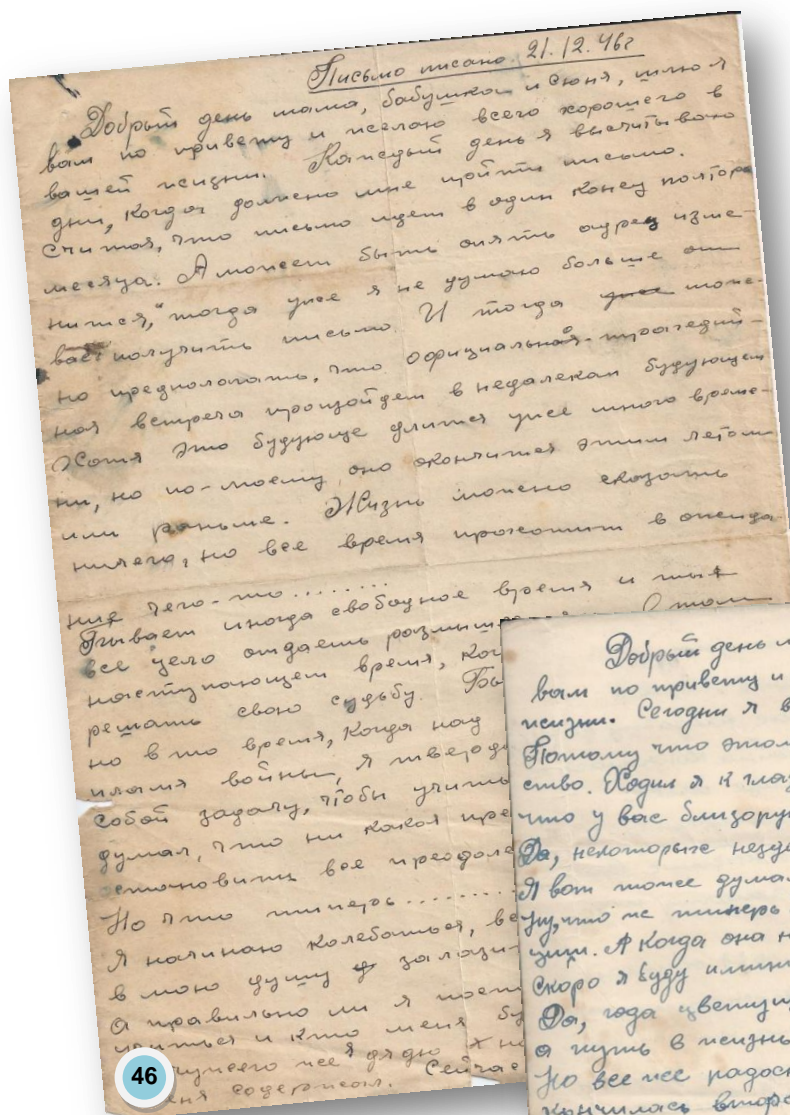 Письмо писано 21.12.46г
Добрый день мама, бабушка и Сюня, шлю я
вам по привету и желаю всего хорошего в
вашей жизни. Каждый день я высчитываю
дни, когда должно мне прийти письмо.
Считая, что письмо идет в один конец полтора
месяца. А может быть опять адрес изме-
нится, тогда уже я не думаю больше от
вас получить письмо. И тогда уже мож-
но предполагать, что официальная-трагедий-
ная встреча произойдет в недалеком будующем
Хотя это будующе длится уже много време-
ни, но по-моему оно окончится этим летом
или раньше. Жизнь можно сказать
ничего, но все время проходит в ожида
ние чего-то........
Бывает иногда свободное время и ты
все цело отдаешь
наступающем время, ког
решать свою судьбу. Бы
но в то время, когда над
пламя войны, я твердо
собой задачу, чтобы учить
думал, что ни какая пре
остановить все преодоле
Но что типерь.........
Я начинаю колебаться, ве
в мою душу залази
А правильно ли я пост
учиться и кто меня бу
же дядю
содержал. Сейчас
Добрый день м
вам по привету и
жизни. Сегодни я в
Потому что этом
ство. Ходил я к глаз
что у вас близорук
Да, некоторые незд
Я вот тоже думал
ну, что же типерь
ции. А когда она н
Скоро я буду имин
Да, года цветущи
а путь в жизнь
Но все же радос
кончилась второ
46